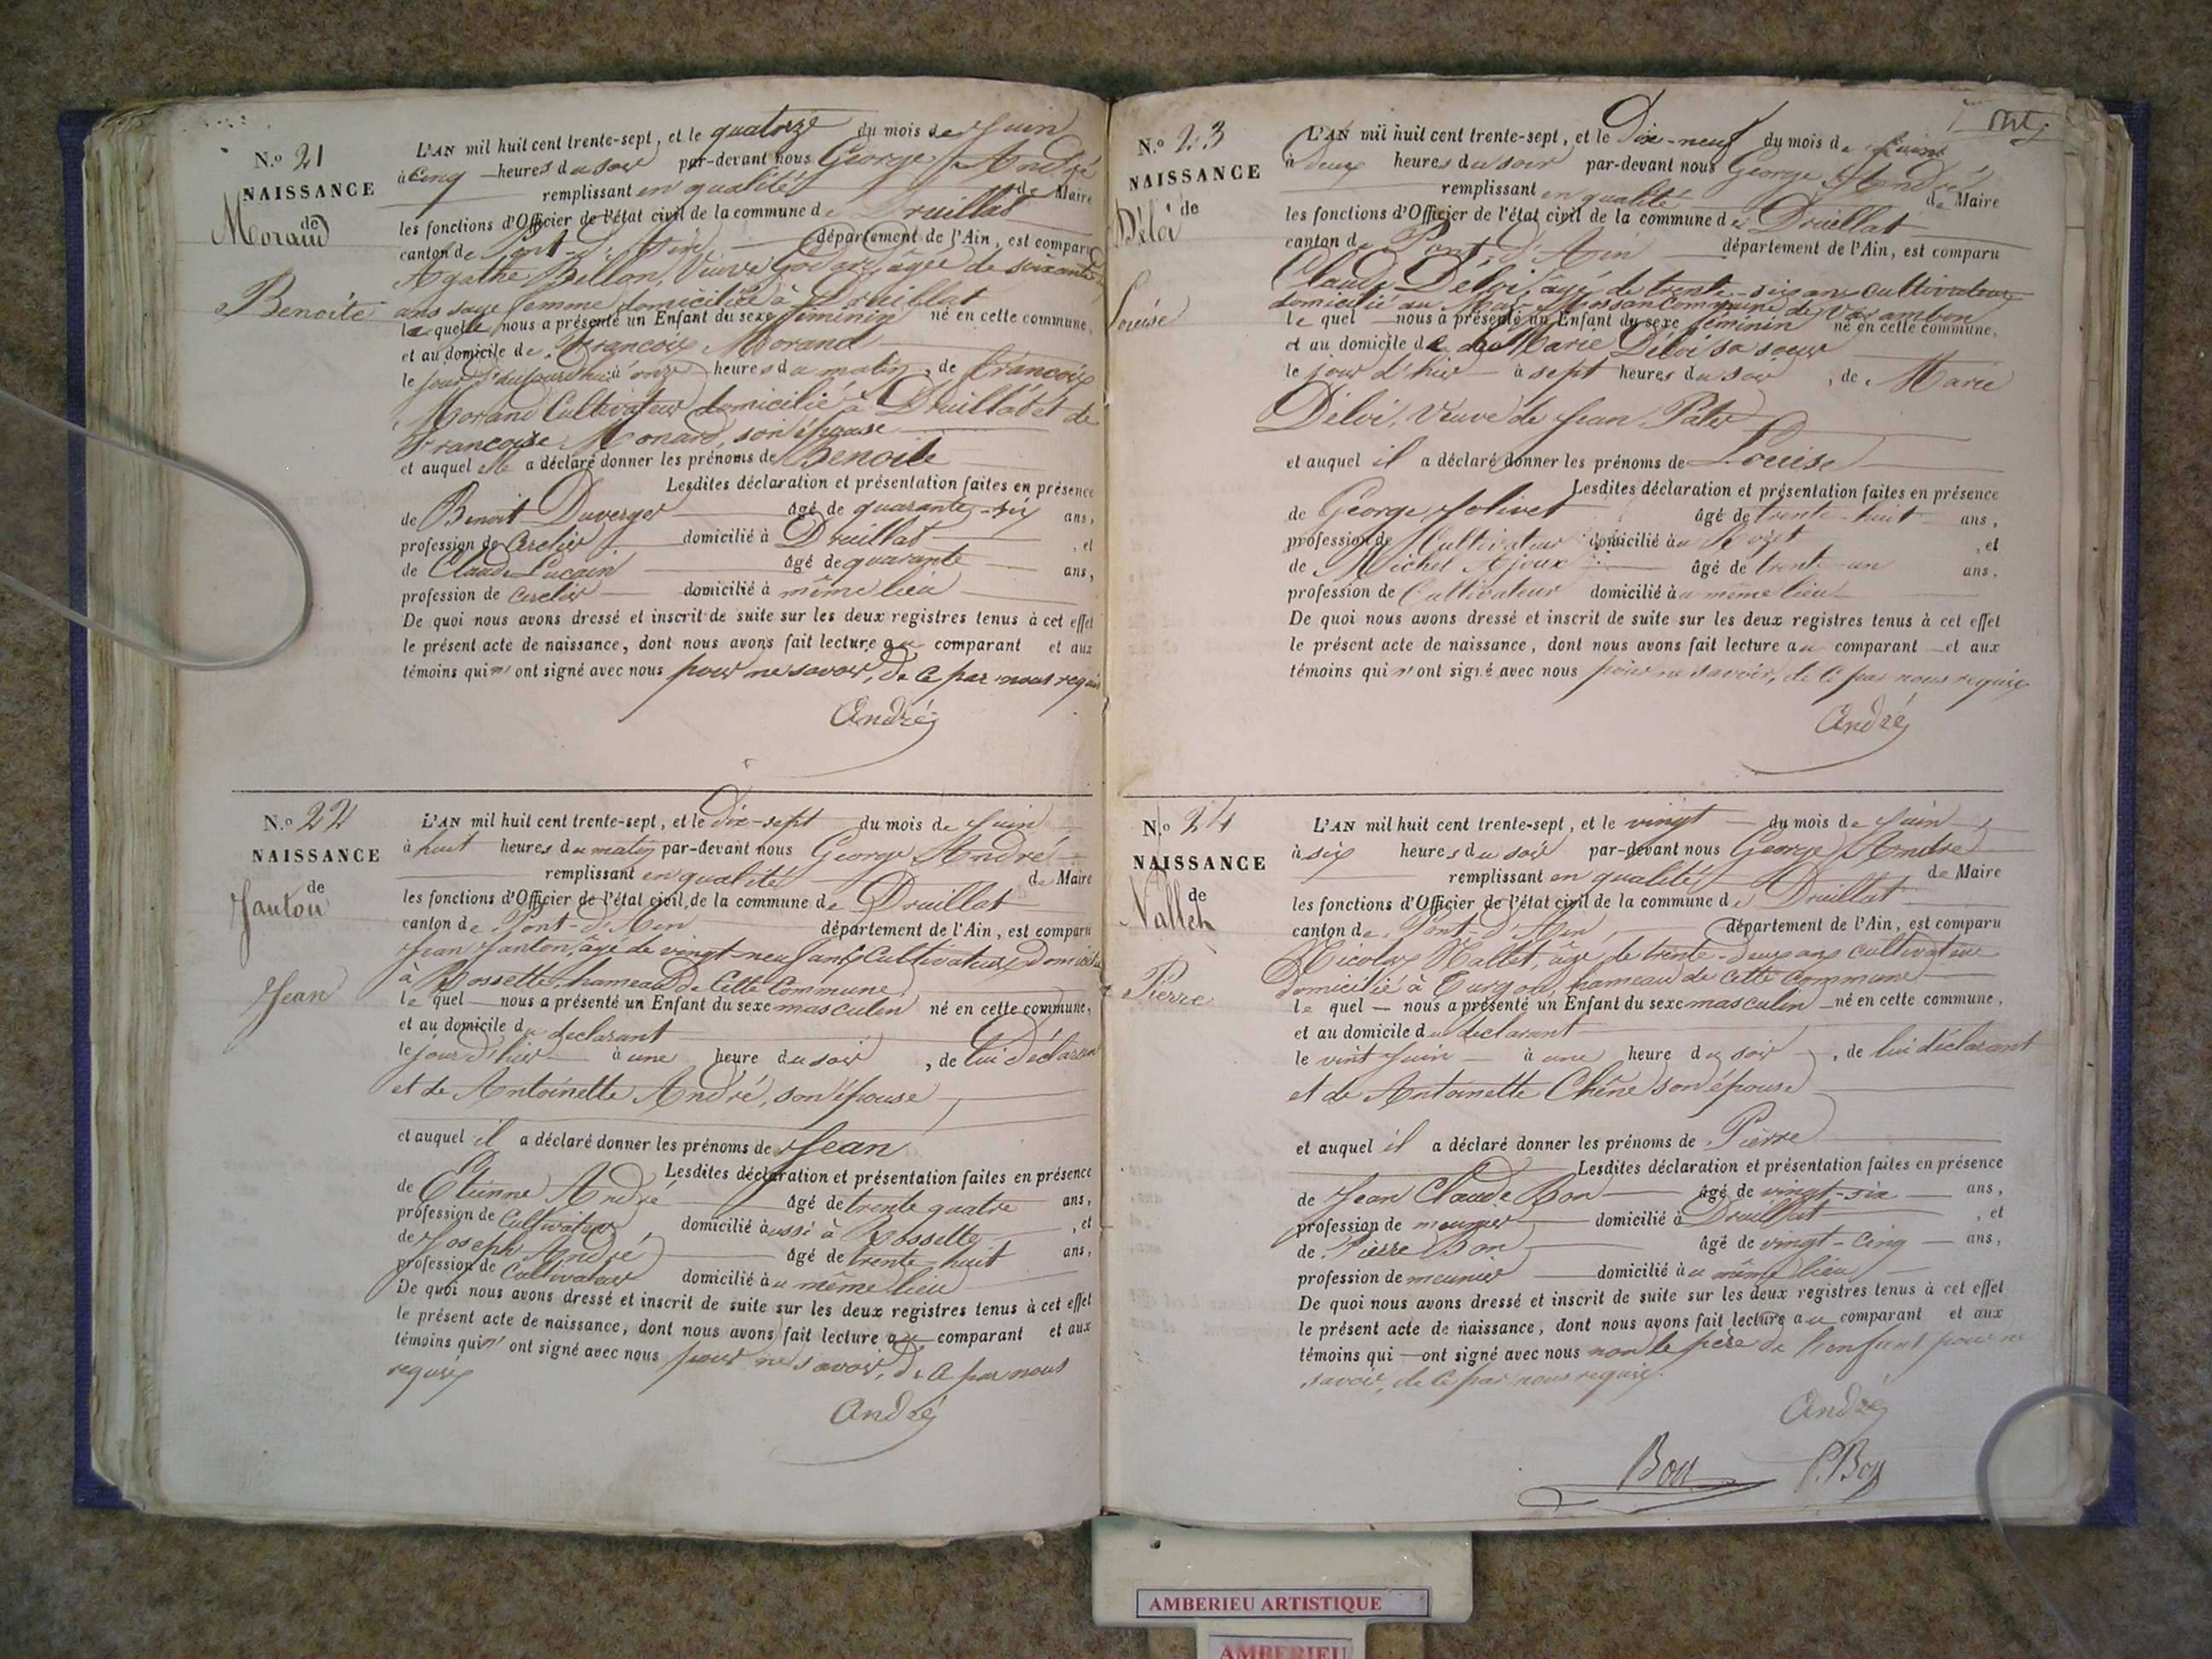 N.o 21
NAISSANCE
de
Morand
Benoite
L'AN mil huit cent trente-sept, et le quatorze du mois de Juin
à cinq heures du soir par-devant nous George André
remplissant en qualité de Maire
les fonctions d'Officier de l'état civil de la commune de Druillat
canton de Pont-d'Ain département de l'Ain, est comparu
Agathe Bellon, Veuve Godard, âgée de soixante
ans sage femme domiciliée à Druillat
laquelle nous a présenté un Enfant du sexe féminin né en cette commune,
et au domicile de François Morand
le jour d'aujourd'hui à onze heures du matin, de François
Morand Cultivateur domicilié à Druillat et de
Françoise Monard, son épouse
et auquel elle a déclaré donner les prénoms de Benoite
Lesdites déclaration et présentation faites en présence
de Benoit Duverger âgé de quarante-six ans,
profession de Cerclier domicilié à Druillat, et
de Claude Lucain âgé de quarante ans,
profession de cerclier domicilié à même lieu
De quoi nous avons dressé et inscrit de suite sur les deux registres tenus à cet effet
le présent acte de naissance, dont nous avons fait lecture au comparant et aux
témoins qui n'ont signé avec nous pour ne savoir, de ce par nous requis
André
N.o 22
NAISSANCE
de
Janton
Jean
L'AN mil huit cent trente-sept, et le Dix-sept du mois de Juin
à huit heures du matin par-devant nous George André
remplissant en qualité de Maire
les fonctions d'Officier de l'état civil de la commune de Druillat
canton de Pont-d'Ain département de l'Ain, est comparu
Jean Janton, âgé de vingt neuf ans, Cultivateur, Domicilié
à Rossette, hameau de cette Commune
lequel nous a présenté un Enfant du sexe masculin né en cette commune,
et au domicile du déclarant
le jour d'hier à une heure du soir, de lui déclarant
et de Antoinette André, son épouse
et auquel il a déclaré donner les prénoms de Jean
Lesdites déclaration et présentation faites en présence
de Etienne André âgé de trente quatre ans,
profession de Cultivateur, domicilié aussi à Rossette, et
de Joseph André âgé de trente-huit ans,
profession de Cultivateur domicilié au même lieu
De quoi nous avons dressé et inscrit de suite sur les deux registres tenus à cet effet
le présent acte de naissance, dont nous avons fait lecture au comparant et aux
témoins qui n'ont signé avec nous pour ne savoir, de ce par nous
requis
André
N.o 23
NAISSANCE
de
Déloi
Louise
L'AN mil huit cent trente-sept, et le Dix-neuf du mois de Juin
à deux heures du soir par-devant nous George André
remplissant en qualité de Maire
les fonctions d'Officier de l'état civil de la commune de Druillat
canton de Pont-d'Ain département de l'Ain, est comparu
Claude Déloi, âgé de trente-six ans cultivateur
domicilié au Mas- commune de Varambon
lequel nous a présenté un Enfant du sexe féminin né en cette commune,
et au domicile de Marie Déloi sa soeur
le jour d'hier à sept heures du soir, de Marie
Déloi, Veuve de Jean
et auquel il a déclaré donner les prénoms de Louise
Lesdites déclaration et présentation faites en présence
de George Jolivet âgé de trente-huit ans,
profession de Cultivateur domicilié au, et
de Michel Ajoux âgé de trente-un ans,
profession de Cultivateur domicilié au même lieu
De quoi nous avons dressé et inscrit de suite sur les deux registres tenus à cet effet
le présent acte de naissance, dont nous avons fait lecture au comparant et aux
témoins qui n'ont signé avec nous pour ne savoir, de ce par nous requis
André
N.o 24
NAISSANCE
de
Nallet
Pierre
L'AN mil huit cent trente-sept, et le vingt du mois de Juin
à six heures du soir par-devant nous George André
remplissant en qualité de Maire
les fonctions d'Officier de l'état civil de la commune de Druillat
canton de Pont-d'Ain, département de l'Ain, est comparu
Nicolas Nallet, âgé de trente-deux ans cultivateur
domicilié à Turgon, hameau de cette commune
lequel nous a présenté un Enfant du sexe masculin né en cette commune,
et au domicile du déclarant
le vint Juin à une heure du soir, de lui déclarant
et de Antoinette Chêne son épouse
et auquel il a déclaré donner les prénoms de Pierre
Lesdites déclaration et présentation faites en présence
de Jean Claude Bon âgé de vingt-six ans,
profession de meunier domicilié à Druillat, et
de Pierre Bon âgé de vingt-cinq ans,
profession de meunier domicilié au même lieu
De quoi nous avons dressé et inscrit de suite sur les deux registres tenus à cet effet
le présent acte de naissance, dont nous avons fait lecture au comparant et aux
témoins qui ont signé avec nous non le père de l'enfant pour ne
savoir, de ce par nous requis.
André
Bon P. Bon
AMBERIEU ARTISTIQUE
AMBERIEU